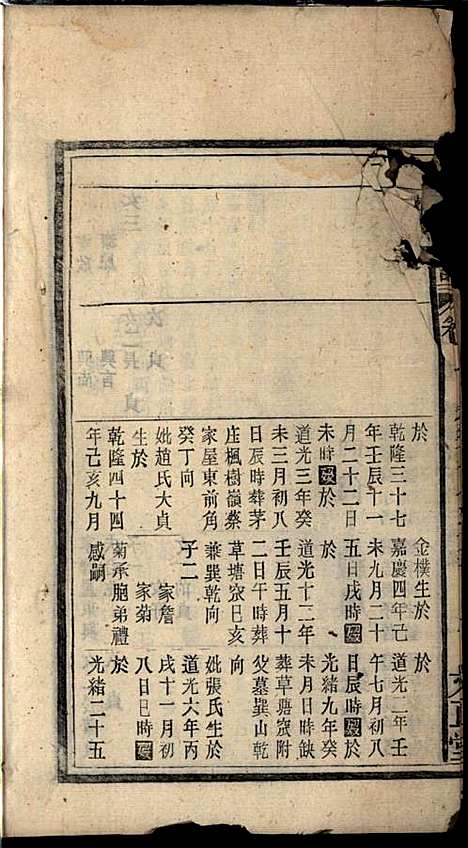 於
乾隆三十七
年壬辰十一
月二十二日
未時歿於
道光三年癸
未三月初八
日辰時葬茅
庄楓樹嶺蔡
家屋東前角
癸丁向
妣趙氏大貞
生於
乾隆四十四
年己亥九月
金樸生於
嘉慶四年己
未九月二十
五日戌時歿
於
道光十二年
壬辰五月十
二日午時葬
草塘窊巳亥
兼巽乾向
子二
家詹
家菊
菊承胞弟禮
感嗣
於
道光二年壬
午七月初八
日辰時歿於
光緒九年癸
未月日時缺
葬草塘窊附
父墓巽山乾
向
妣張氏生於
道光六年丙
戌十一月初
八日巳時歿
於
光緒二十五